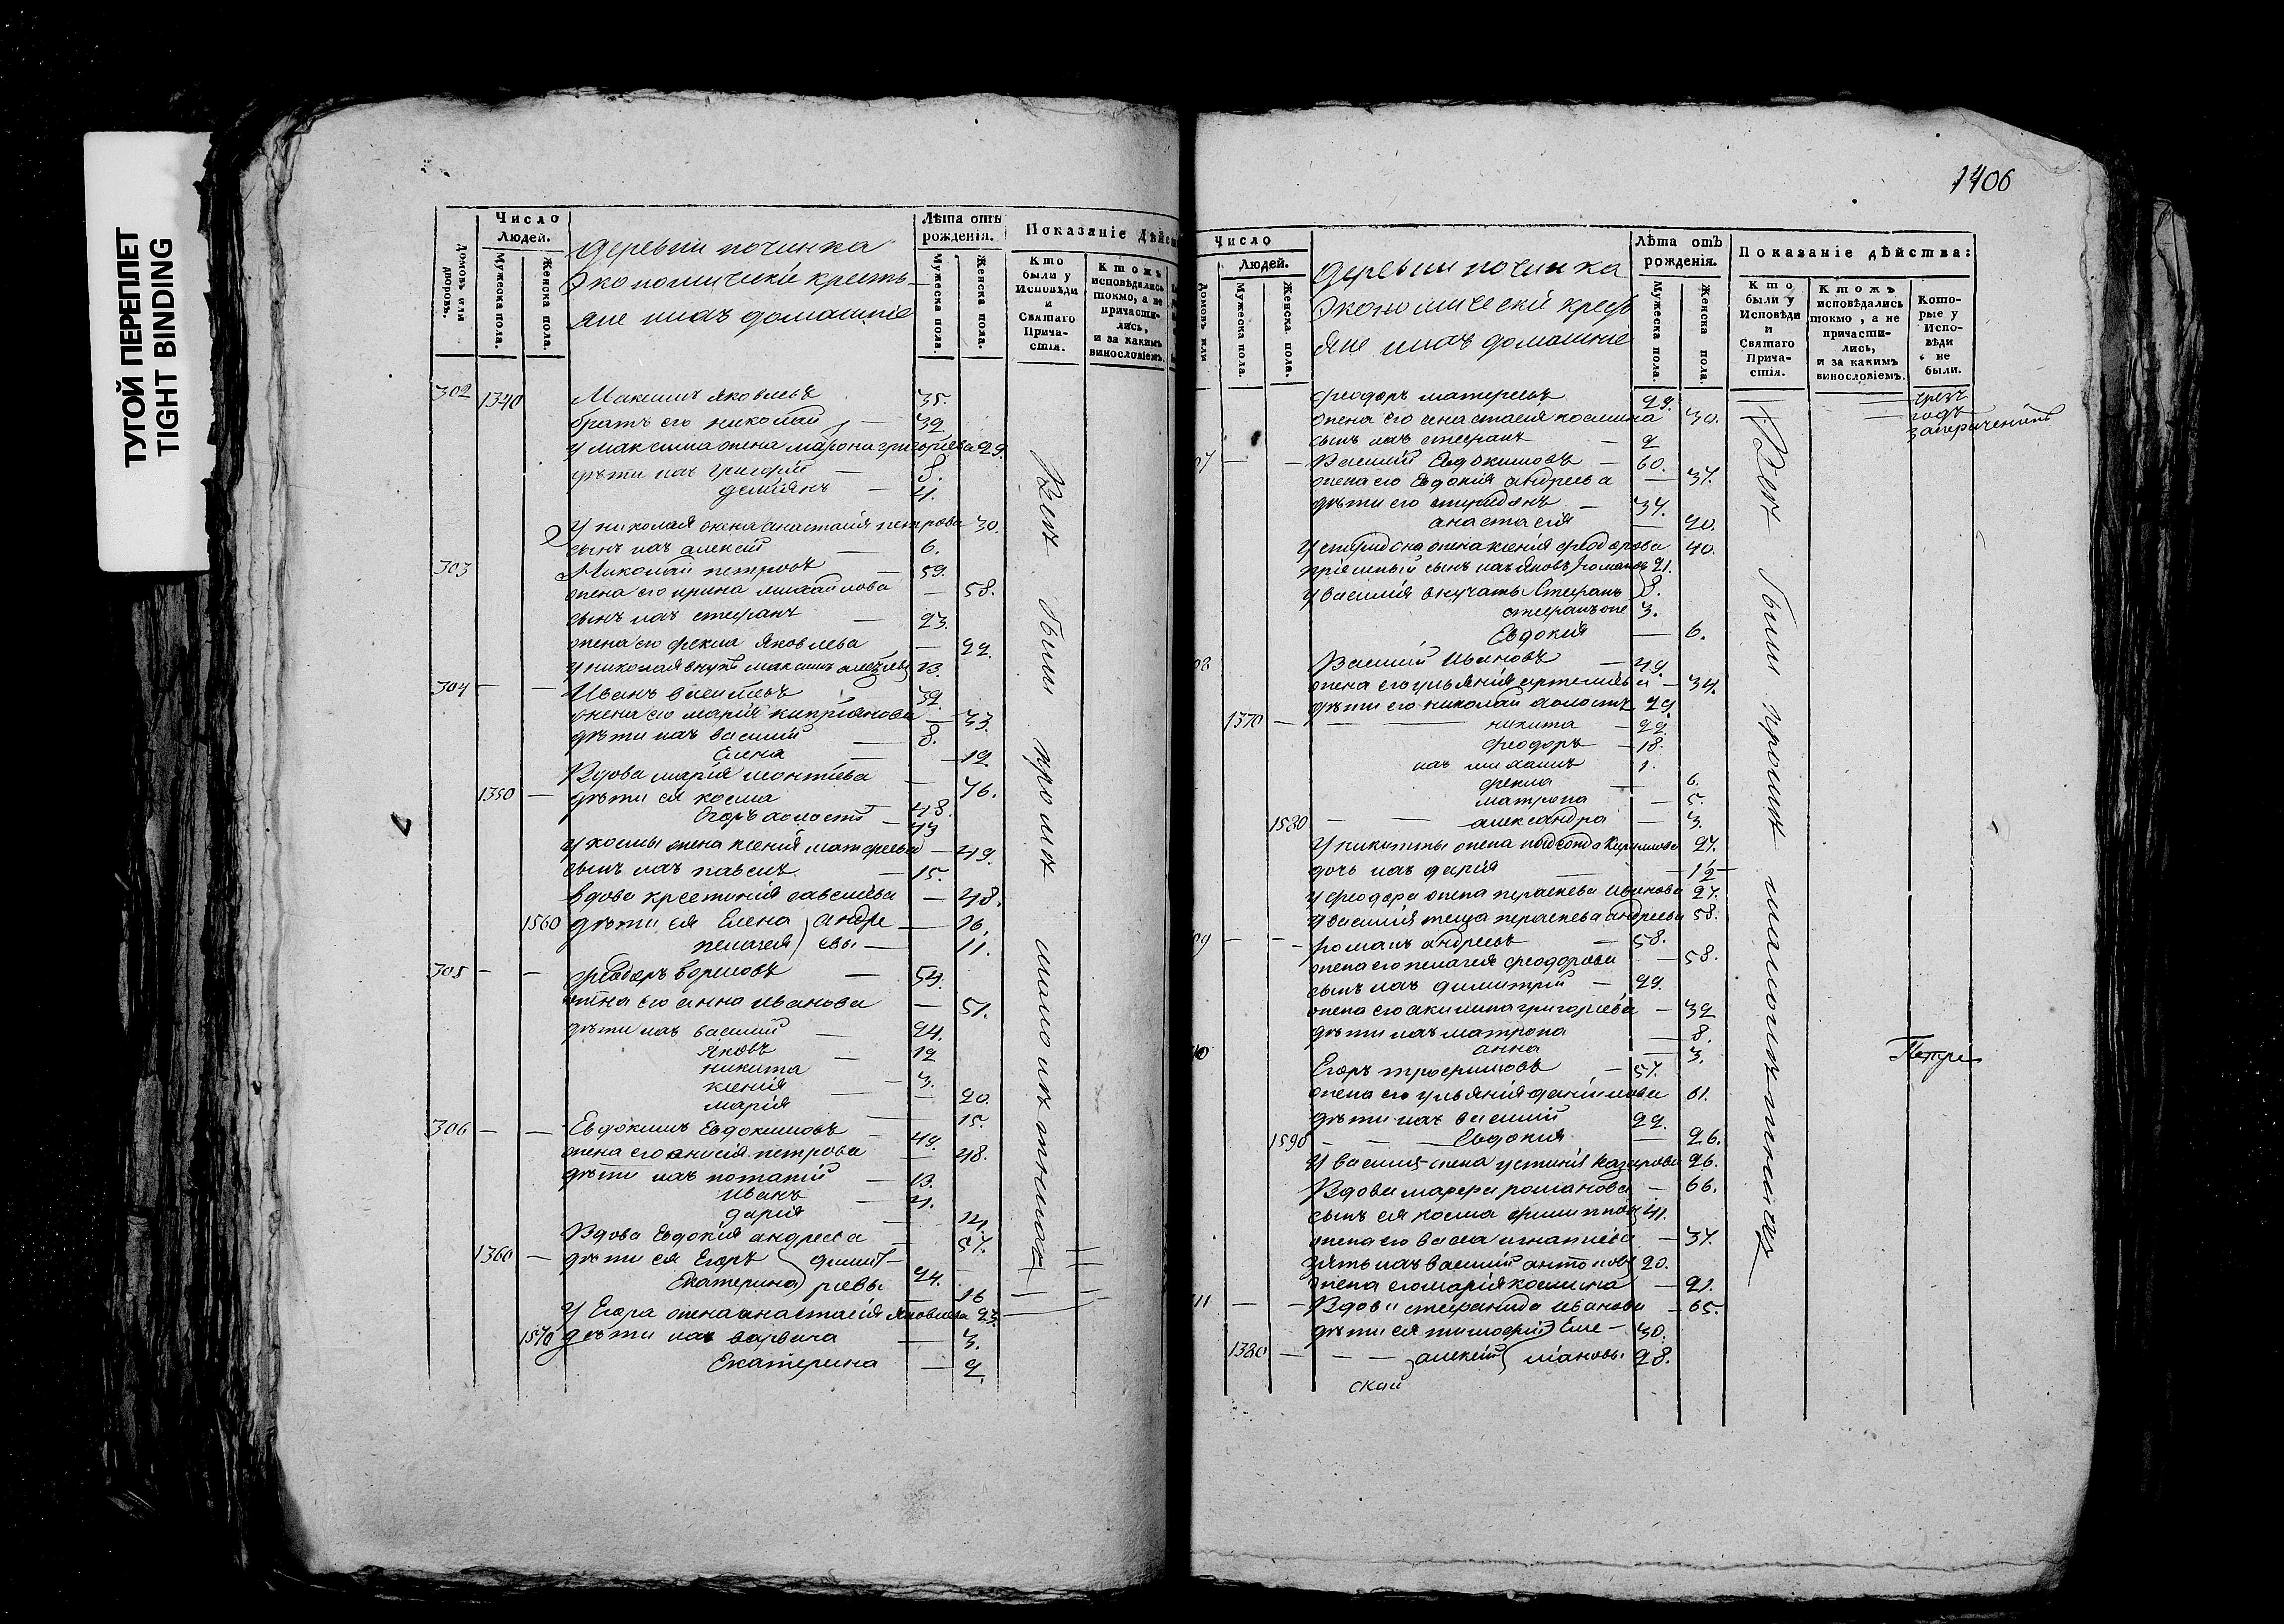 ТУГОЙ ПЕРЕПЛЕТ
TIGHT BINDING
Домовъ или дворовъ.
Число
Людей.
Мужеска пола.
Женска пола.
деревни починка
Экономическіи кресть-
яне ихъ домашніе
Лѣта отъ
рожденія.
Мужеска пола.
Женска пола.
Показаніе дѣйс
Кто
были у
Исповѣди
и
Святаго
Прича-
стія.
Ктожъ
исповѣдались
токмо, а не
причасти-
лись,
и за какимъ
винословіемъ.
302 1340 Максимъ Яковлевъ 35.
братъ его николай — 32
у максима жена григорьева 29.
дѣти ихъ григорій — 8.
— 4.
у николая жена анастасія петрова 30.
сынъ ихъ алексѣй — 6.
303 Николай петровъ — 59.
жена его ирина михайлова — 58.
сынъ ихъ стефанъ — 23.
жена его фекла Яковлева — 22.
у николая внукъ максимъ 13.
304 — — Иванъ васильевъ 32.
жена его марія кипріянова — 33.
дѣти ихъ василій — 8.
Елена — 12
Вдова марія леонтіева — 76.
1350 — дѣти ея косма — 48.
Егоръ холостъ — 43
у космы жена ксенія матфеева — 49.
сынъ ихъ павелъ — 15.
вдова крестинія савельева — 48.
1560 дѣти ея Елена андре — 16.
пелагея евы — 11.
305 — — феодоръ — 54.
жена его анна иванова — 51.
дѣти ихъ василій — 24.
яковъ — 12
никита — 3.
ксенія — 20.
марія — 15.
306 — — Евдокимъ Евдокимовъ — 49.
жена его анисія петрова — 48.
дѣти ихъ — 13.
иванъ — 4.
дарія — 14.
Вдова Евдокія андреева — 57.
1360 — дѣти ея Егоръ димит- 24.
Екатерина ріевы — 16
у Егора жена анастасія яковлева 23.
1570 дѣти ихъ варвара — 3.
Екатерина — 2.
Всѣ были
1406
Домовъ или
Число
Людей.
Мужеска пола.
Женска пола.
деревни починка
Экономическіи кресть
яне ихъ домашніе
Лѣта отъ
рожденія.
Мужеска пола.
Женска пола.
Показаніе дѣйства:
Кто
были у
Исповѣди
и
Святаго
Прича-
стія.
Ктожъ
исповѣдались
токмо, а не
причасти-
лись,
и за какимъ
винословіемъ.
Кото-
рые у
Испо-
вѣди
не
были.
феодоръ матфеевъ 29.
жена его анастасія космина 30.
сынъ ихъ стефанъ — 2
07 — — Василій Евдокимовъ — 60.
жена его Евдокія андреева — 57.
дѣти его спиридонъ — 34.
анастасія — 20.
у спиридона жена ксенія феодорова 40.
пріемный сынъ ихъ яковъ романовъ 21.
у василія внучаты Стефанъ 8.
3.
Евдокія — 6.
08 Василій Ивановъ — 49.
жена его ульянія артемьева — 34.
дѣти его николай холостъ 29
1370 — никита — 22.
феодоръ — 18.
ихъ михаилъ 1.
фекла — 6.
матрона — 5.
1580 — — александра — 3.
у никиты жена 27.
дочь ихъ дарія — 1/2
у феодора жена параскева иванова 27.
у василія теща параскева андреева 58.
09 — — романъ андреевъ — 58.
жена его пелагея феодорова — 58.
сынъ ихъ димитрій — 29.
жена его акилина григорьева — 32
дѣти ихъ матрона — 8.
анна — 3.
10 Егоръ трофимовъ — 57.
жена его ульянія данилова 61.
дѣти ихъ василій 22.
1590 — — Евдокія — 26.
у василія жена устинія назарова 26.
Вдова марфа романова — 66.
сынъ ея косма филиповъ 41.
жена его васса игнатіева — 37.
зять ихъ василій антоновъ 20.
жена его марія космина — 21.
11 — — Вдова стефанида иванова — 65.
дѣти ея тимофей Еме- 30.
1380 — — — алексѣй ліановы 28.
Всѣ были
чрезъ
годъ